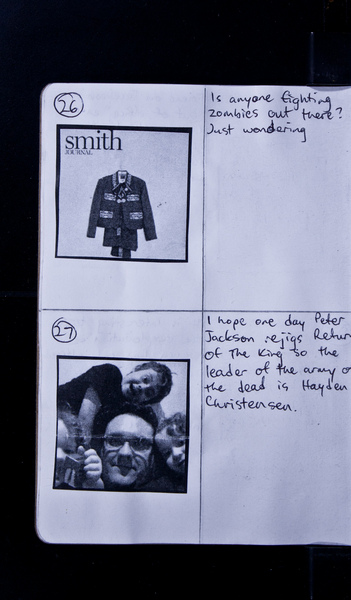 26
smith
JOURNAL
Is anyone fighting
zombies out there?
Just wondering
27
I hope one day Peter
Jackson rejigs Retur
of The King so the
leader of the army o
the dead is Hayden
Christensen.